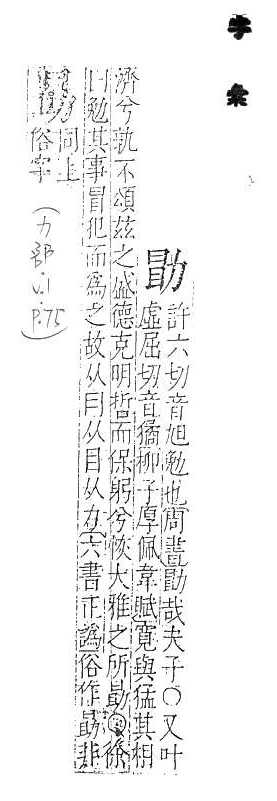 字彙
勖 許六切音旭勉也周書勖哉夫子○又叶
虛屈切音獝柳子厚佩韋賦寬與猛其相
濟兮孰不頌茲之盛德克明哲而保躬兮恢大雅之所勖○徐
曰勉其事冒犯而爲之故从冃从目从力六書正譌俗作勗非
同上
俗字
(力部.v.1.P.75)